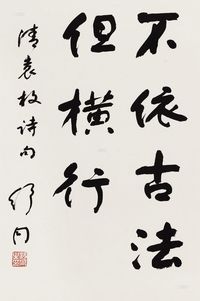 不依古法
但横行
清袁枚诗句
舒同